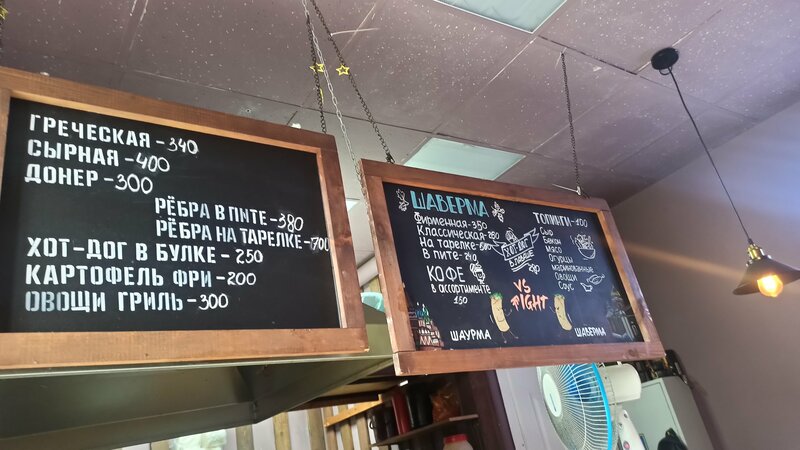 ГРЕЧЕСКАЯ - 340
СЫРНАЯ - 400
ДОНЕР - 300
РЁБРА В ПИТЕ - 380
РЁБРА НА ТАРЕЛКЕ - 700
ХОТ-ДОГ В БУЛКЕ - 250
КАРТОФЕЛЬ ФРИ - 200
ОВОЩИ ГРИЛЬ - 300
ШАВЕРМА
Фирменная - 350
Классическая - 280
На тарелке -
В пите - 240
КОФЕ
в ассортименте
150
ХОТ-ДОГ
в лаваше
ТОПИНГИ - 100
Сыр
Бекон
Мясо
Огурцы
маринованные
Овощи
Соус
VS
FIGHT
ШАУРМА
ШАВЕРМА